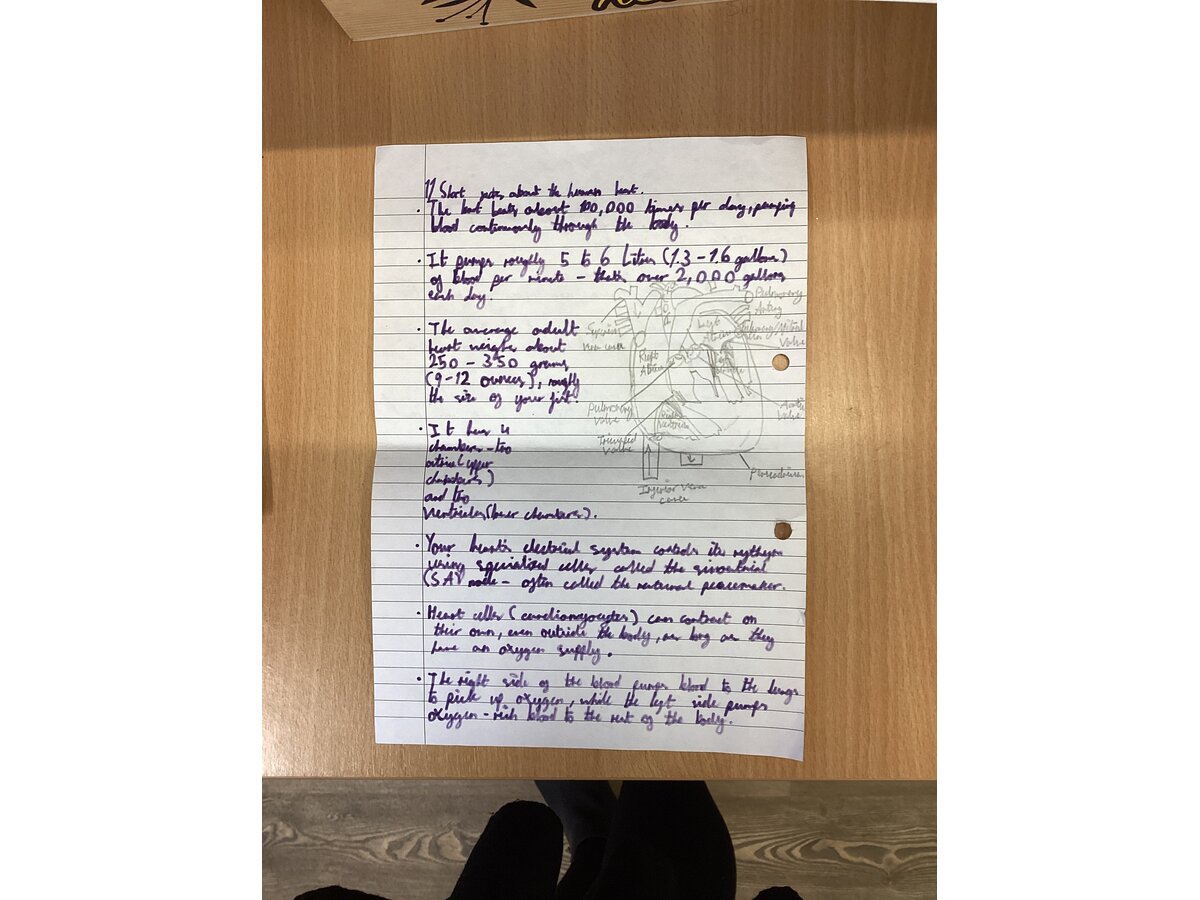 1) Short notes about the human heart.
· The heart beats about 100,000 times per day, pumping
blood continuously through the body.
· It pumps roughly 5 to 6 Liters (1.3 - 1.6 gallons)
of blood per minute - that's over 2,000 gallons
each day.
· The average adult
heart weighs about
250 - 350 grams
(9-12 ounces), roughly
the size of your fist.
· It has 4
chambers - two
atria (upper
chambers)
and two
ventricles (lower chambers).
Superior
vena cava
Pulmonary
Artery
Left
Atrium
Pulmonary
Mitral
Valve
Right
Atrium
Pulmonary
Valve
Aortic
Valve
Right
Ventricle
Tricuspid
Valve
Inferior vena
cava
· Your heart's electrical system controls its rythym
using specialized cells called the sinoatrial
(SA) node - often called the natural peacemaker.
· Heart cells (cardiomyocytes) can contract on
their own, even outside the body, as long as they
have an oxygen supply.
· The right side of the blood pumps blood to the lungs
to pick up oxygen, while the left side pumps
oxygen - rich blood to the rest of the body.